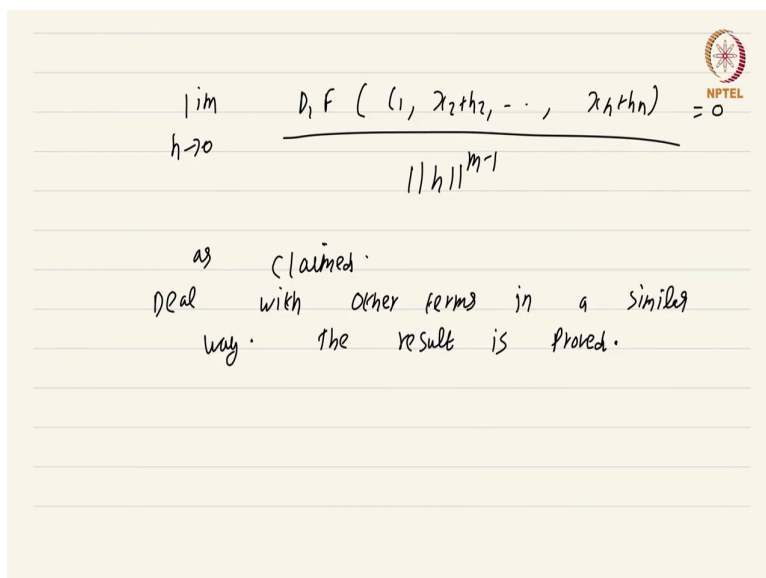 lim D₁F (c₁, x₂+h₂, -- ·, xₙ+hₙ) = 0
h→0 ||h||^{m-1}
NPTEL
as claimed.
Deal with other terms in a similar
way. The result is proved.